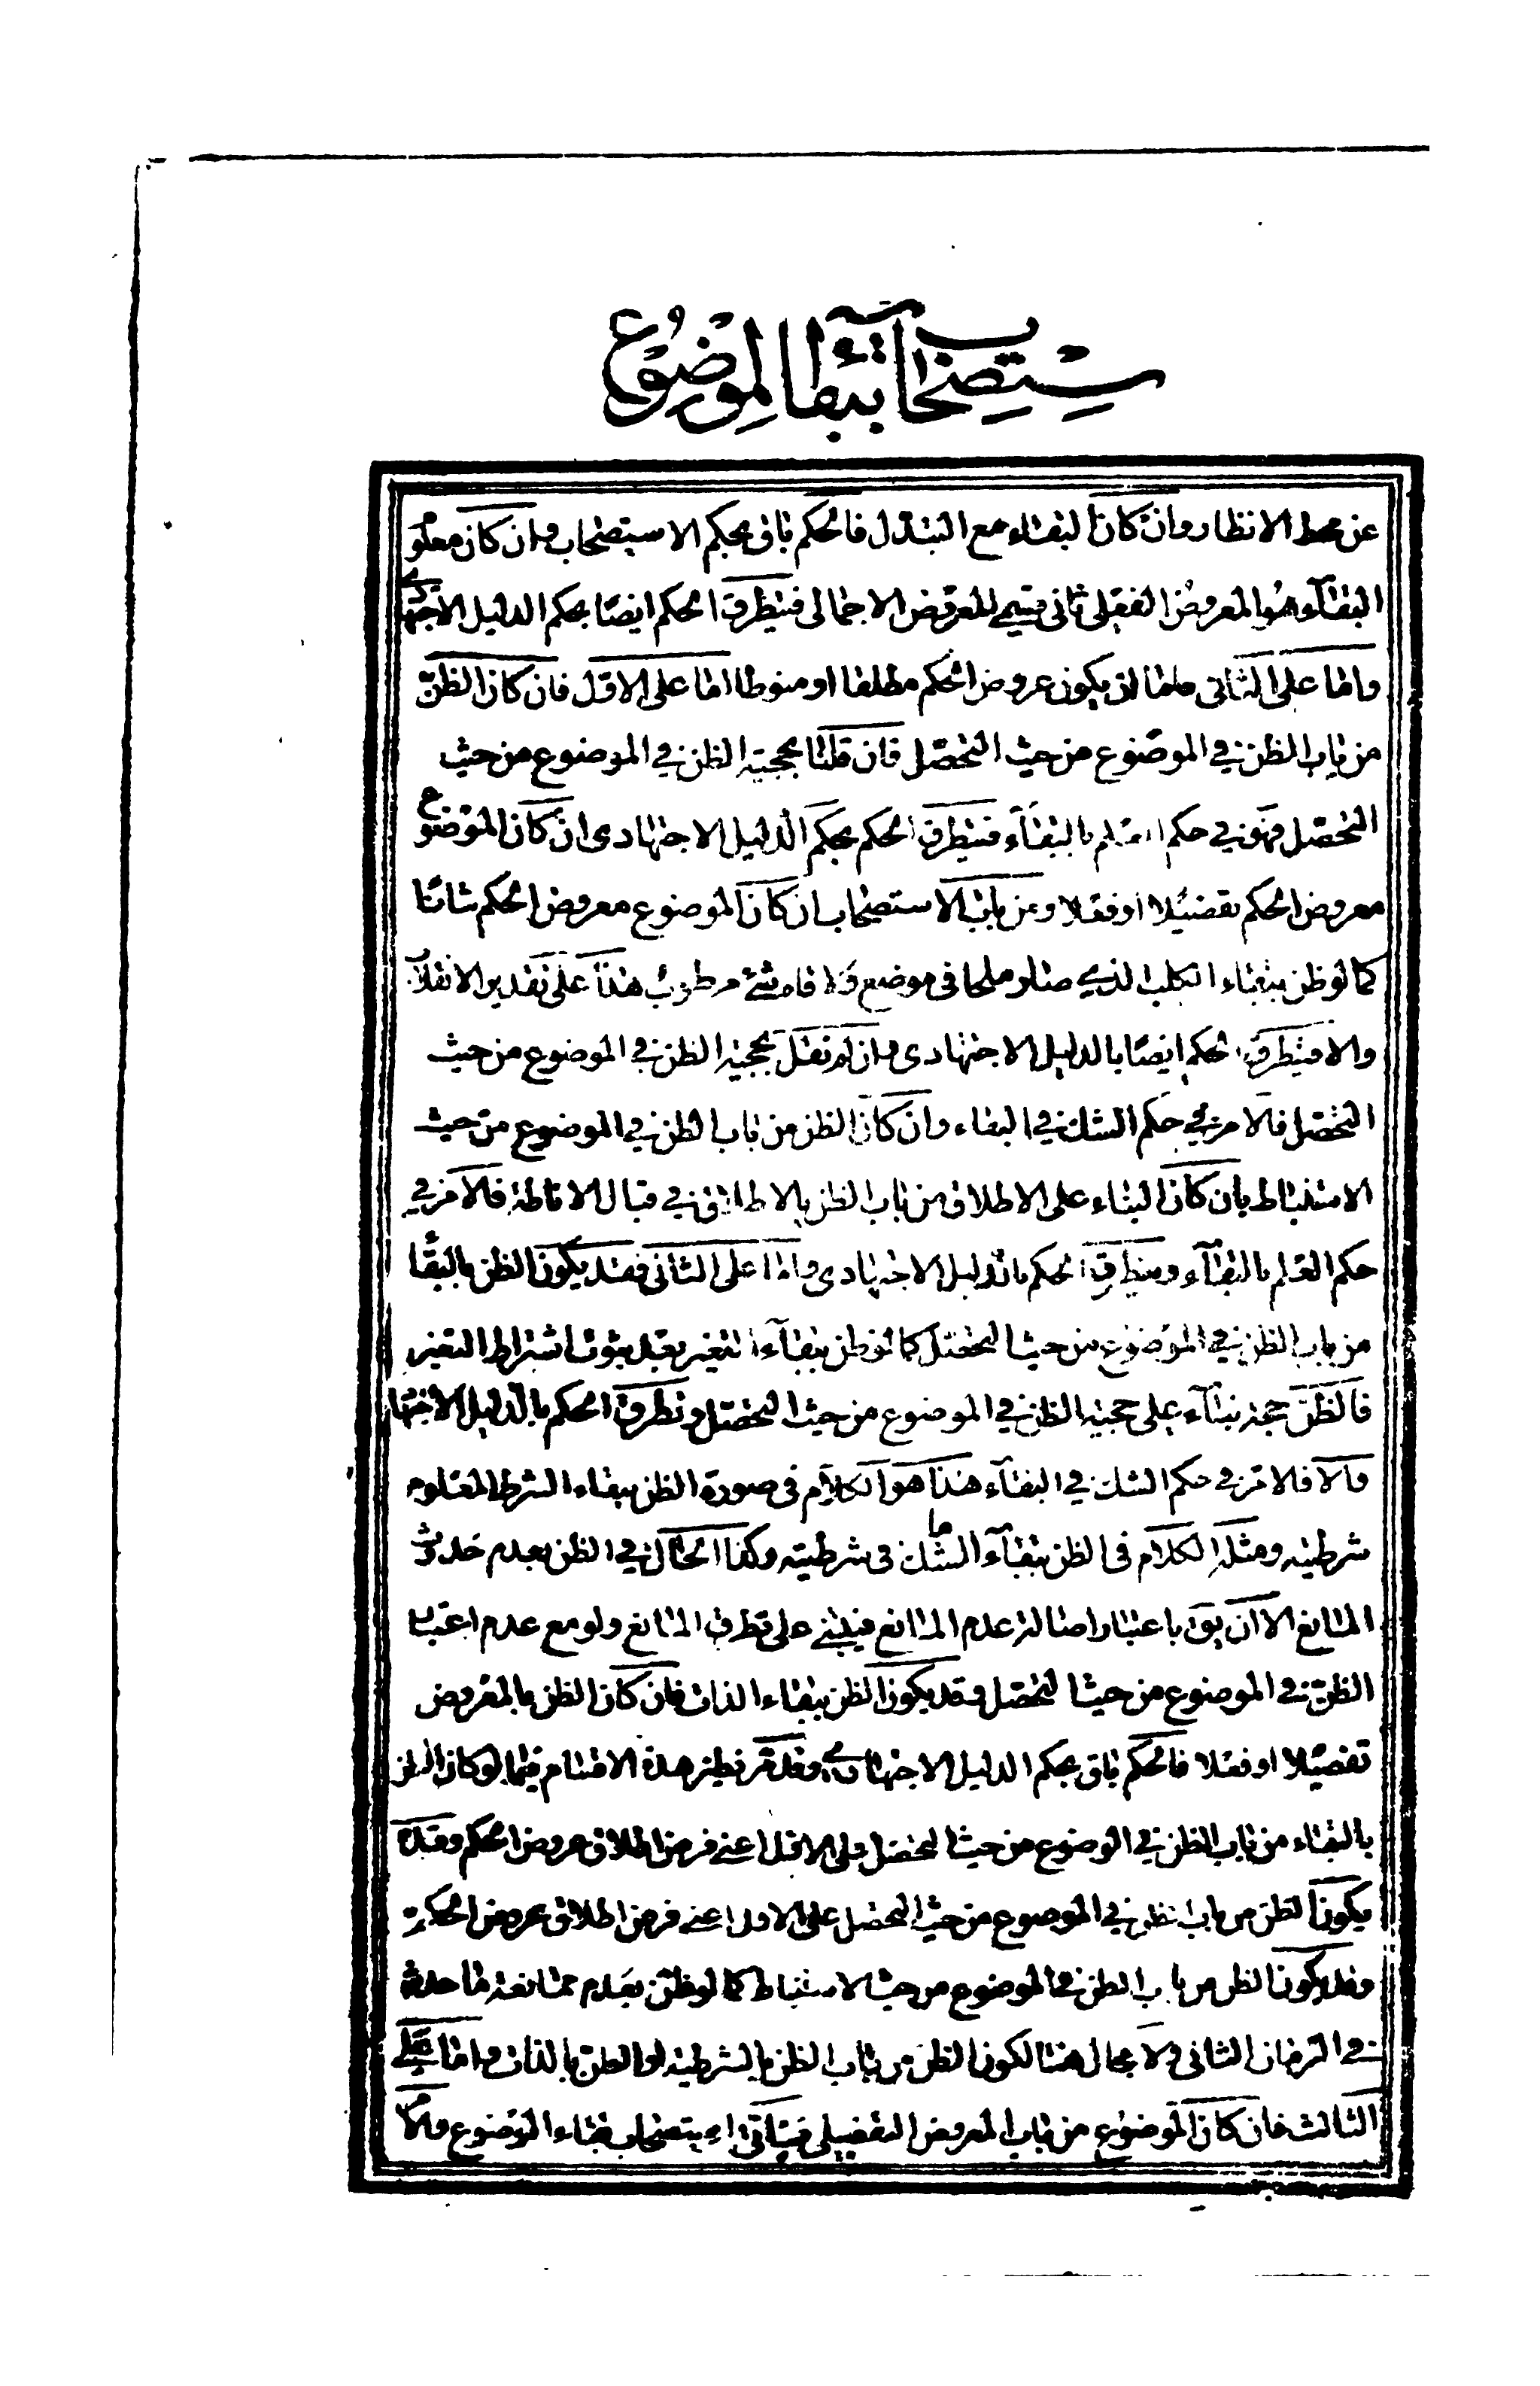 ستصحاب بقاء الموضوع
عن محط الانظار وان كان البقاء مع التبدل فالحكم باق بحكم الاستصحاب وان كان معلو
البقاء هو المعروض الفعلى ثانى قسيمى المعروض الاجمالى فيتطرق الحكم ايضا بحكم الدليل الاجتهادى
واما على الثانى فاما ان يكون عروض الحكم مطلقا او منوطا اما على الاول فان كان الظن
من باب الظن فى الموضوع من حيث التحصل فان قلنا بحجية الظن فى الموضوع من حيث
التحصل فهو فى حكم العلم بالبقاء فيتطرق الحكم بحكم الدليل الاجتهادى ان كان الموضوع
معروض الحكم تفصيلا او فعلا ومن باب الاستصحاب ان كان الموضوع معروض الحكم شانا
كما لو ظن ببقاء الكلب الذى صار ملحا فى موضع شىء مرطوب هذا على تقدير الانقلاب
والا فيتطرق الحكم ايضا بالدليل الاجتهادى وان لم نقل بحجية الظن فى الموضوع من حيث
التحصل فالامر فى حكم الشك فى البقاء وان كان الظن من باب الظن فى الموضوع من حيث
الاستنباط بان كان البناء على الاطلاق من باب الظن بالاطلاق فى قبال الاناطة فالامر فى
حكم العلم بالبقاء ويتطرق الحكم بالدليل الاجتهادى واما على الثانى فقد يكون الظن بالبقا
من باب الظن فى الموضوع من حيث التحصل كما لو ظن ببقاء التغير بعد ثبوت اشتراط التغير
فالظن حجة بناء على حجية الظن فى الموضوع من حيث التحصل وتطرق الحكم بالدليل الاجتها
والا فالامر فى حكم الشك فى البقاء هذا هو الكلام فى صورة الظن ببقاء الشرط المعلوم
شرطيته ومثله الكلام فى الظن ببقاء ما الشك فى شرطيته وكذا الحال فى الظن بعدم حدوث
المانع الا ان يق باعتبار اصالة عدم المانع فيبنى على تطرق المانع ولو مع عدم اعتبار
الظن فى الموضوع من حيث التحصل وقد يكون الظن ببقاء الذات فان كان الظن بالمعروض
تفصيلا او فعلا فالحكم باق بحكم الدليل الاجتهادى وقد مر نظير هذه الاقسام فيما لو كان الظن
بالبقاء من باب الظن فى الموضوع من حيث التحصل على الاول اعنى فرض اطلاق عروض الحكم وقد
يكون الظن من باب الظن فى الموضوع من حيث التحصل على الاول اعنى فرض اطلاق عروض الحكم
وقد يكون الظن من باب الظن فى الموضوع من حيث الاستنباط كما لو ظن بعدم ممانعة ما حدث
فى الزمان الثانى ولا مجال هنا لكون الظن من باب الظن بالشرطية او الظن بالذات واما على
الثالث فان كان الموضوع من باب المعروض التفصيلى فيتاتى استصحاب بقاء الموضوع